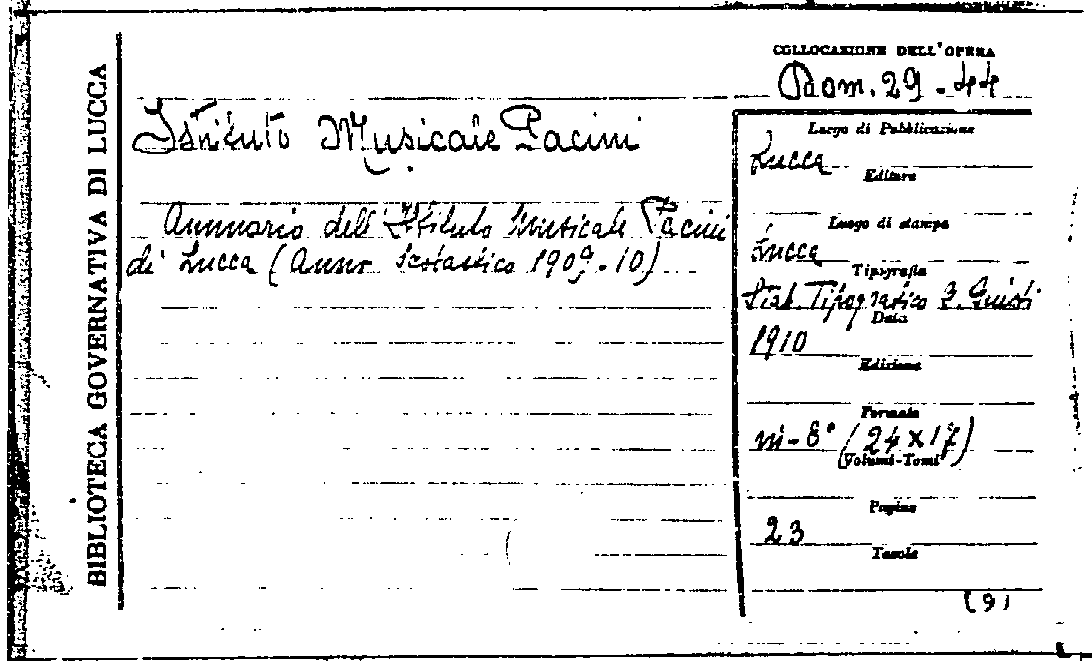 BIBLIOTECA GOVERNATIVA DI LUCCA
COLLOCAZIONE DELL'OPERA
29-44
Istituto Musicale Pacini
Annuario dell'Istituto Musicale Pacini
di Lucca (Anno Scolastico 1909-10)
Luogo di Pubblicazione
Lucca
Editore
Luogo di stampa
Lucca
Tipografia
Stab. Tipografico G. Giusti
Data
1910
Edizione
Formato
in-8° (24 x 17)
Volumi-Tomi
Pagine
23
Tavole
(9)